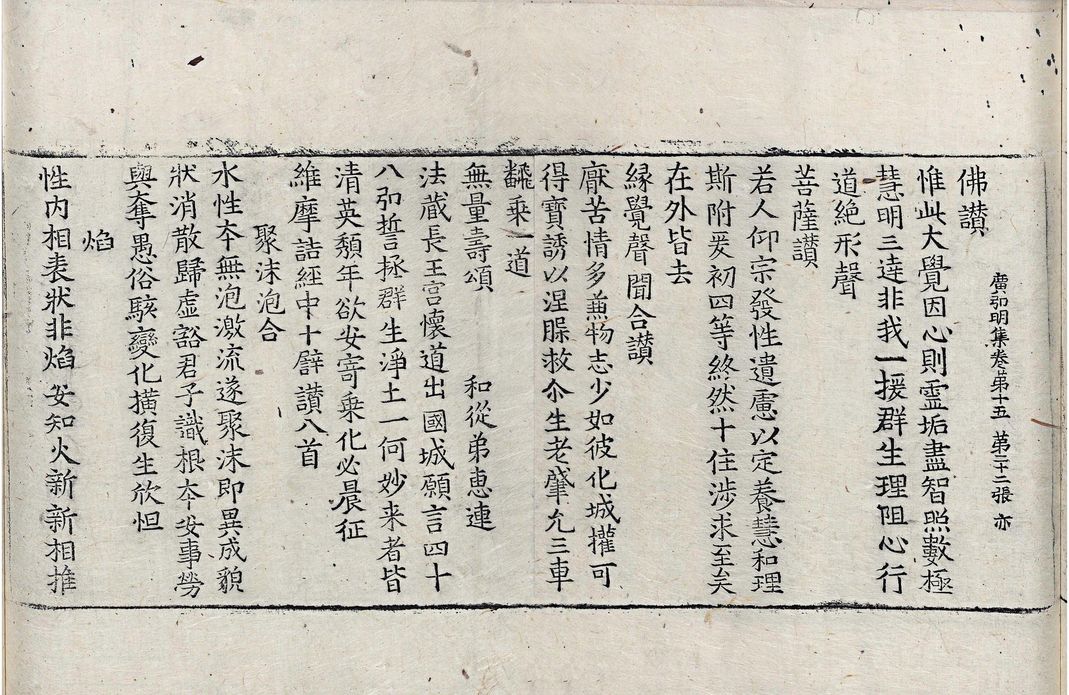 廣弘明集卷第十五 第二十二張 亦
佛讃
惟此大覺因心則靈垢盡智照數極
慧明三達非我一援群生理阻心行
道絶形聲
菩薩讃
若人仰宗發性遺慮以定養慧和理
斯附爰初四等終然十住涉求至矣
在外皆去
緣覺聲聞合讃
厭苦情多兼物志少如彼化城權可
得寶誘以涅槃救尒生老肇允三車
翻乘一道
無量壽頌 和從弟惠連
法藏長王宮懷道出國城願言四十
八弘誓拯群生淨土一何妙来者皆
清英頽年欲安寄乗化必晨征
維摩詰經中十譬讃八首
聚沫泡合
水性夲無泡激流遂聚沫即異成貌
狀消散歸虛豁君子識根夲安事勞
與奪愚俗駭變化横復生欣怛
焰
性内相表狀非焰安知火新新相推